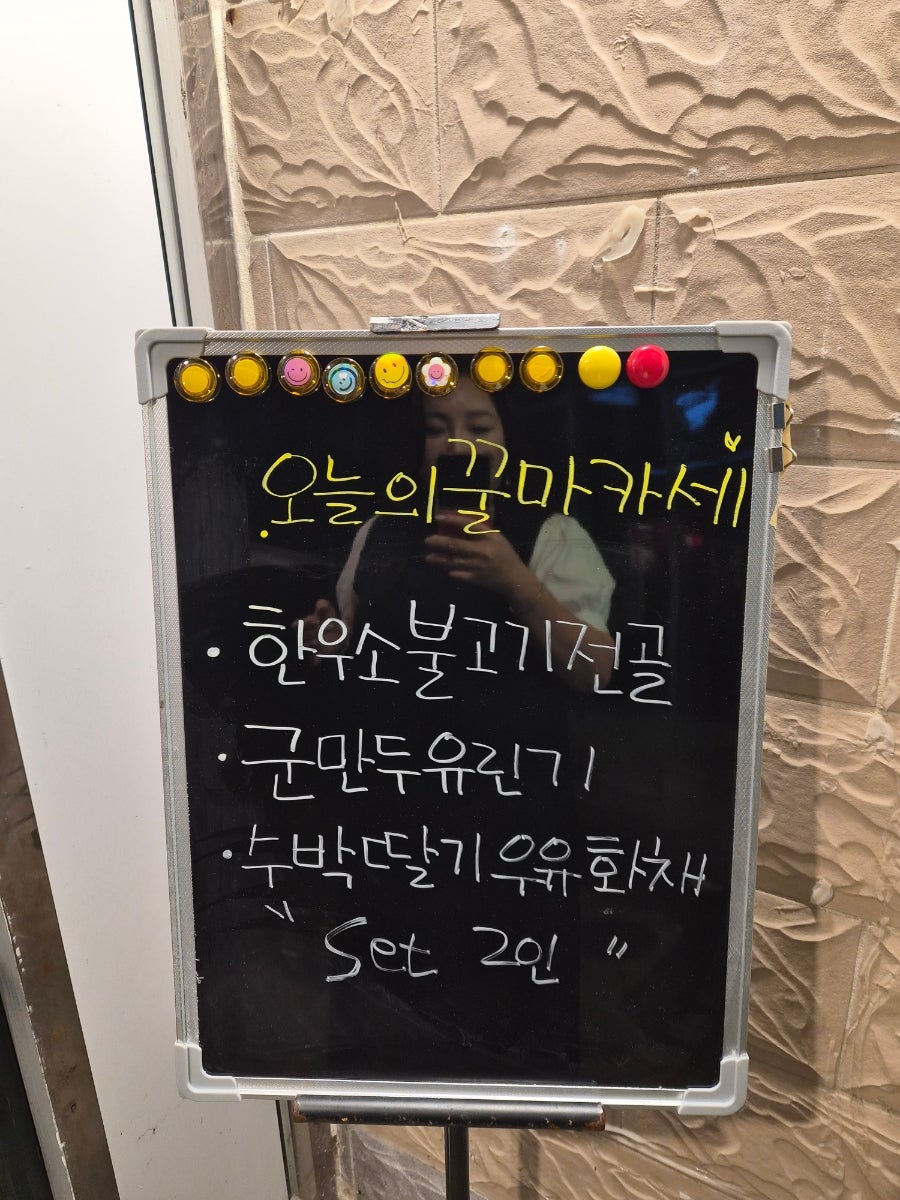 오늘의꿀마카세
· 한우소불고기전골
· 군만두유린기
· 수박딸기우유화채
"Set 2인"